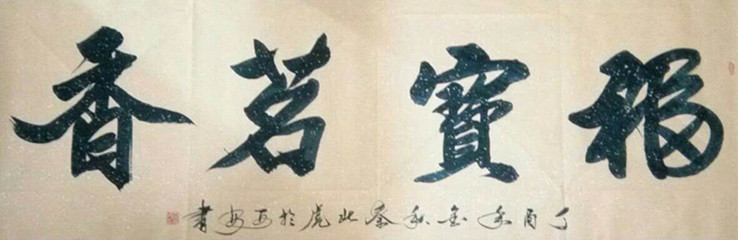 福寶茗香
丁酉年金秋秦此虎於西安書